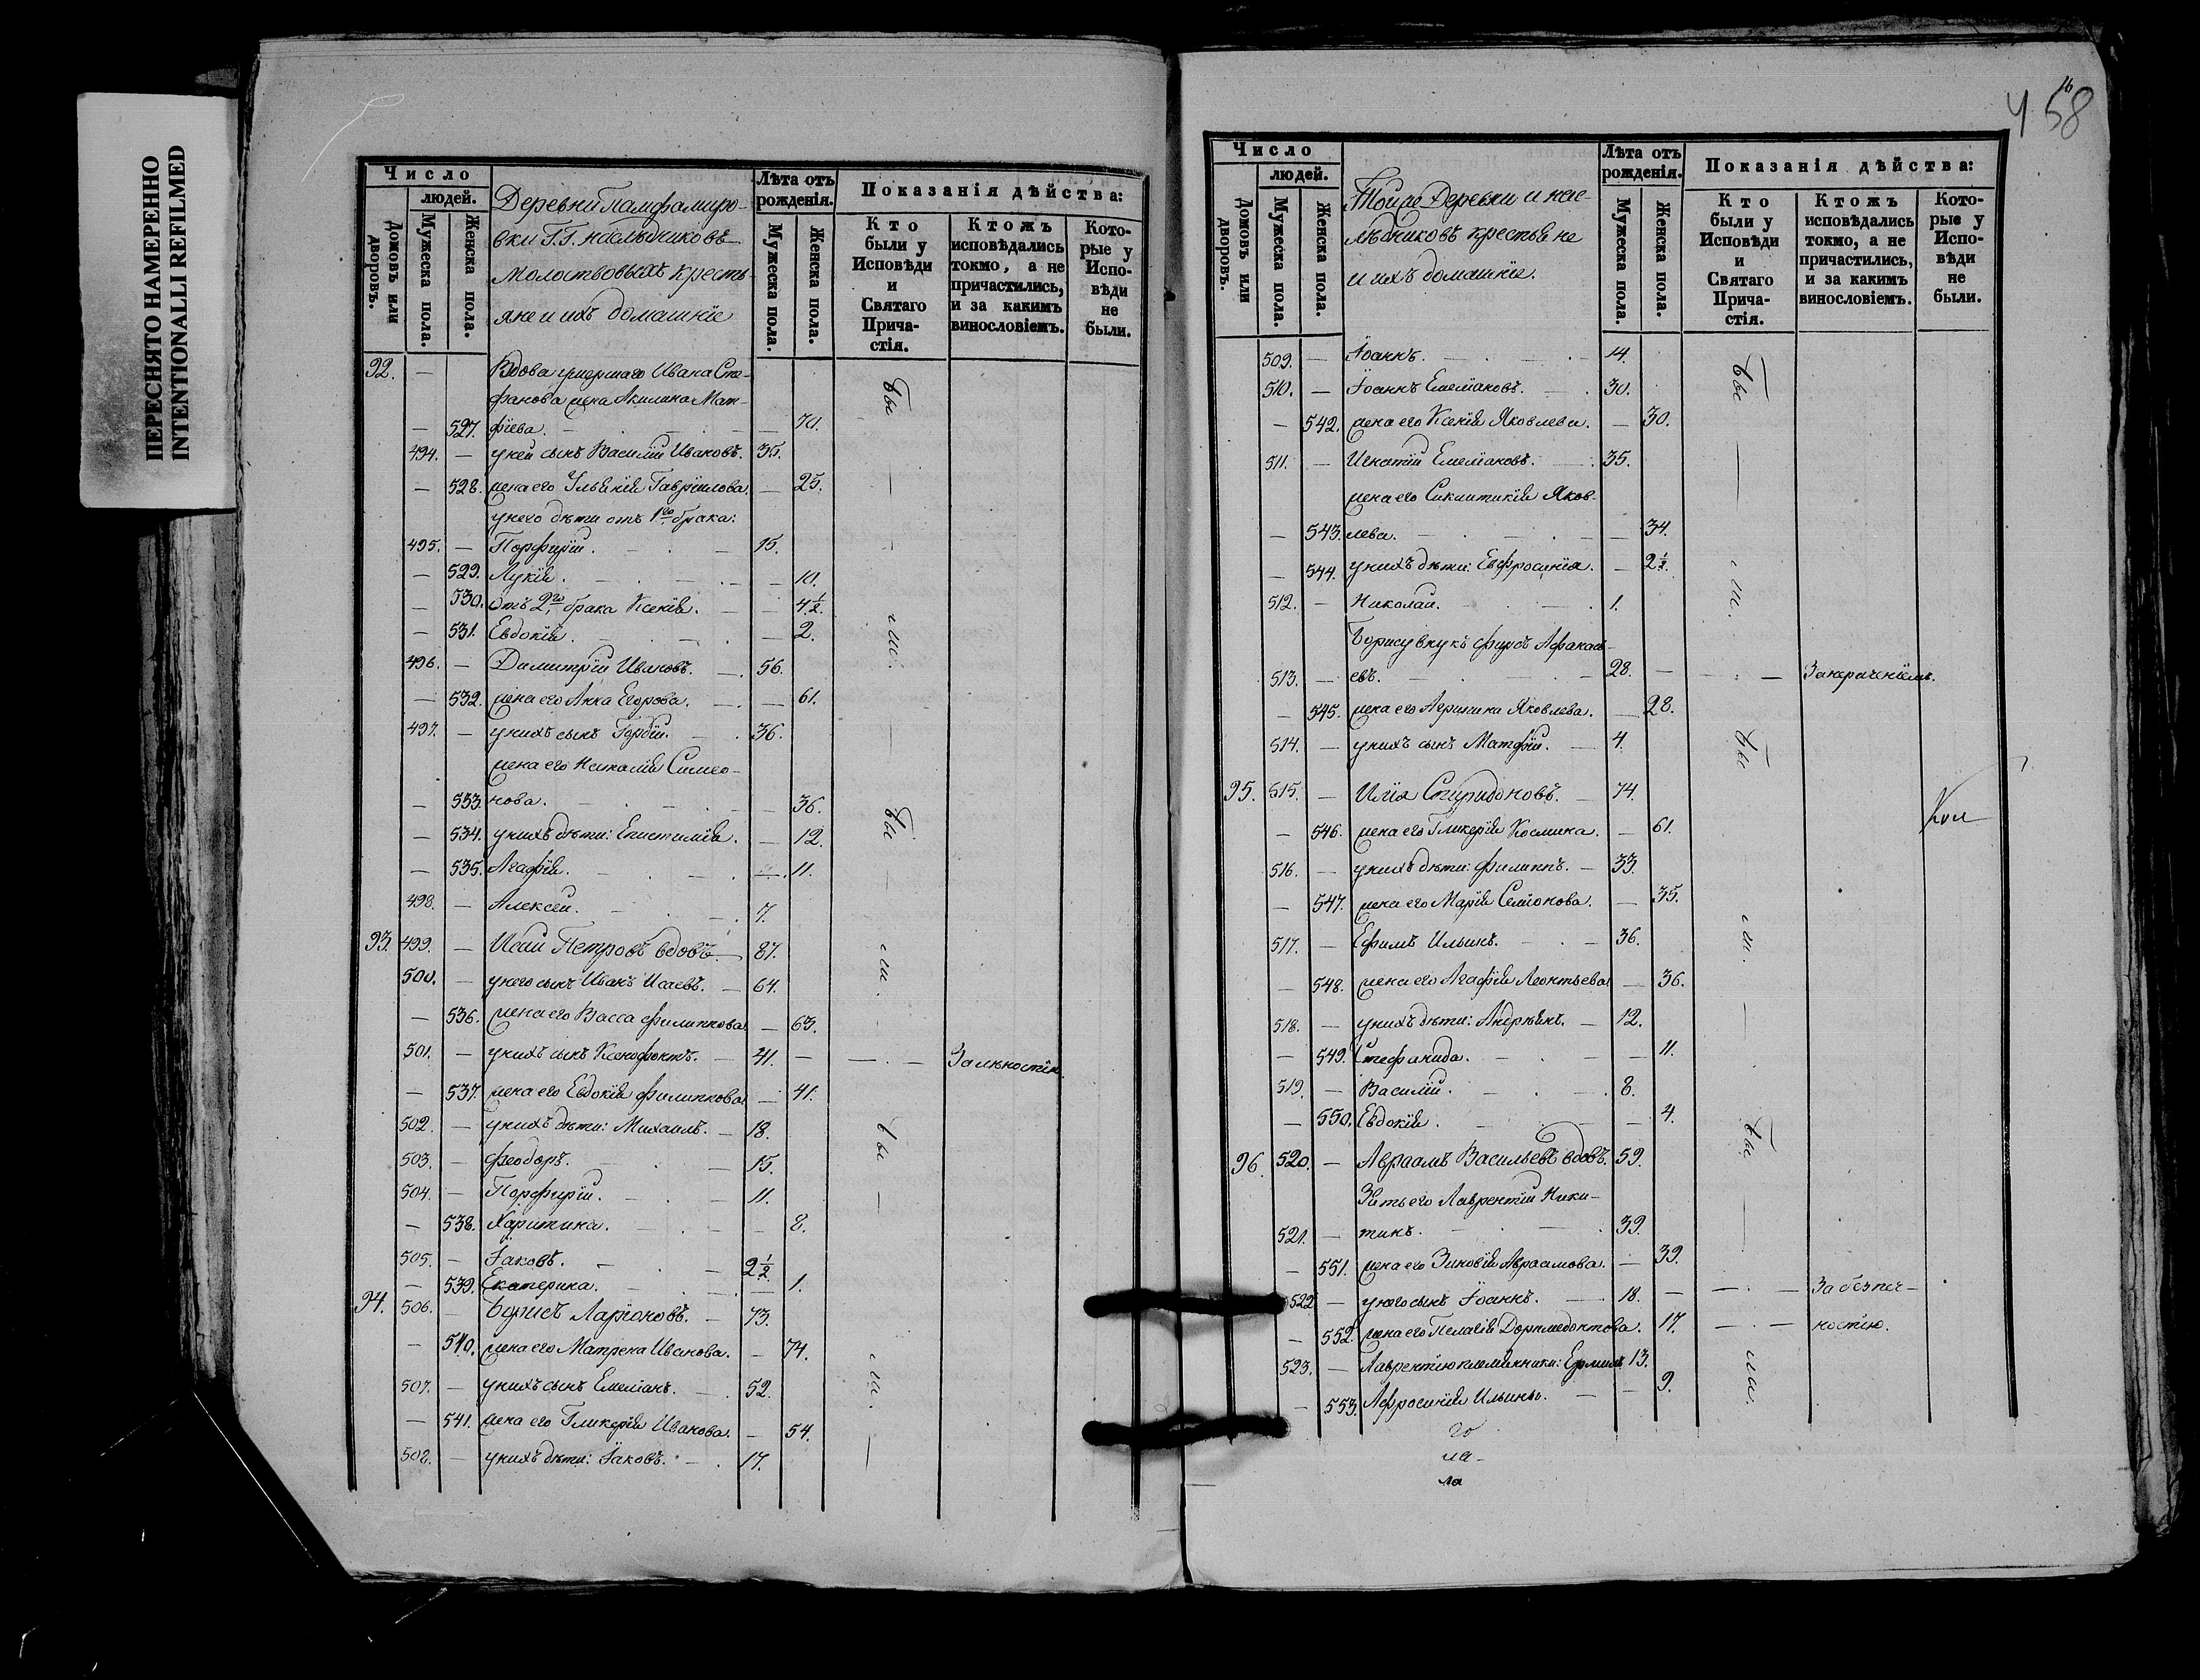 ПЕРЕСНЯТО НАМЕРЕННО
INTENTIONALLI REFILMED
Число
людей.
Домовъ или дворовъ.
Мужеска пола.
Женска пола.
Деревни Памфамиро-
вки Г.Г. наслѣдниковъ
Молоствовыхъ кресть
яне и ихъ домашніе
Лѣта отъ рожденія.
Мужеска пола.
Женска пола.
Показанія дѣйства:
Кто были у Исповѣди и Святаго Прича-стія.
Ктожъ исповѣдались токмо, а не причастились, и за какимъ винословіемъ.
Кото-рые у Испо-вѣди не были.
92. — Вдова умершаго Ивана Сте-
фанова жена Акилина Мат-
— 527. фіева. — 70.
494. — у ней сынъ Василій Ивановъ. 35.
— 528. жена его Ульянія Гавріилова. — 25.
у него дѣти отъ 1го брака:
495. — Порфирій. 15.
— 529. Лукія. — 10.
— 530. Отъ 2го брака Ксенія. — 4 1/2.
— 531. Евдокія. — 2.
496. — Димитрій Ивановъ. 56.
— 532. жена его Анна Егорова. — 61.
497. — у нихъ сынъ Гордій. 36.
жена его Наталія Симео-
— 533. нова. — 36.
— 534. у нихъ дѣти: Епистимія. — 12.
— 535. Агафія. — 11.
498. — Алексей. 7.
93. 499. — Исай Петровъ вдовъ. 87.
500. — у него сынъ Иванъ Исаевъ. 64.
— 536. жена его Васса Филиппова. — 63.
501. — у нихъ сынъ Ксенофонтъ. 41. — За лѣностію.
— 537. жена его Евдокія Филиппова. — 41.
502. — у нихъ дѣти: Михаилъ. 18.
503. — Феодоръ. 15.
504. — Порфирій. 11.
— 538. Харитина. — 8.
505. — Іаковъ. 2 1/2.
— 539. Екатерина. — 1.
94. 506. — Борисъ Ларіоновъ. 73.
— 540. жена его Матрена Иванова. — 74.
507. — у нихъ сынъ Емеліанъ. 52.
— 541. жена его Гликерія Иванова. — 54.
508. — у нихъ дѣти: Іаковъ. 17.
бы
ли.
бы
ли.
бы
ли.
58
Число
людей.
Домовъ или дворовъ.
Мужеска пола.
Женска пола.
Той же Деревни и нас-
лѣдниковъ крестьяне
и ихъ домашніе.
Лѣта отъ рожденія.
Мужеска пола.
Женска пола.
Показанія дѣйства:
Кто были у Исповѣди и Святаго Прича-стія.
Ктожъ исповѣдались токмо, а не причастились, и за какимъ винословіемъ.
Кото-рые у Испо-вѣди не были.
509. — Іоаннъ. 14.
510. — Іоаннъ Емеліановъ. 30.
— 542. жена его Ксенія Яковлева. — 30.
511. — Игнатій Емеліановъ. 35.
жена его Синклитикія Яков-
— 543. лева. — 34.
— 544. у нихъ дѣти: Евфросинія. — 2 1/2.
512. — Николай. 1.
Борису внукъ Фирсъ Афанась-
513. — евъ. 28. —
— 545. жена его Агрипина Яковлева. — 28.
514. — у нихъ сынъ Матфій. 4.
95. 515. — Илія Спиридоновъ. 74.
— 546. жена его Гликерія Космина. — 61.
516. — у нихъ дѣти: Филиппъ. 33.
— 547. жена его Марія Семіонова. — 35.
517. — Ефимъ Ильинъ. 36.
— 548. жена его Агафія Леонтьева. — 36.
518. — у нихъ дѣти: Андреянъ. 12.
— 549. Стефанида. — 11.
519. — Василій. 8.
— 550. Евдокія. — 4.
96. 520. — Авраамъ Васильевъ вдовъ. 59.
Зять его Лаврентій Ники-
521. — тинъ. 39.
— 551. жена его Зиновія Авраамова. — 39.
522. — у него сынъ Іоаннъ. 18. — За безпеч-
— 552. жена его Пелагія Доримедонтова. 17. — ностію.
523. — Лаврентію племянники: Ермилъ 13.
— 553. Афросинія Ильины. — 9.
бы
ли.
бы
ли.
бы
ли.
го
ла